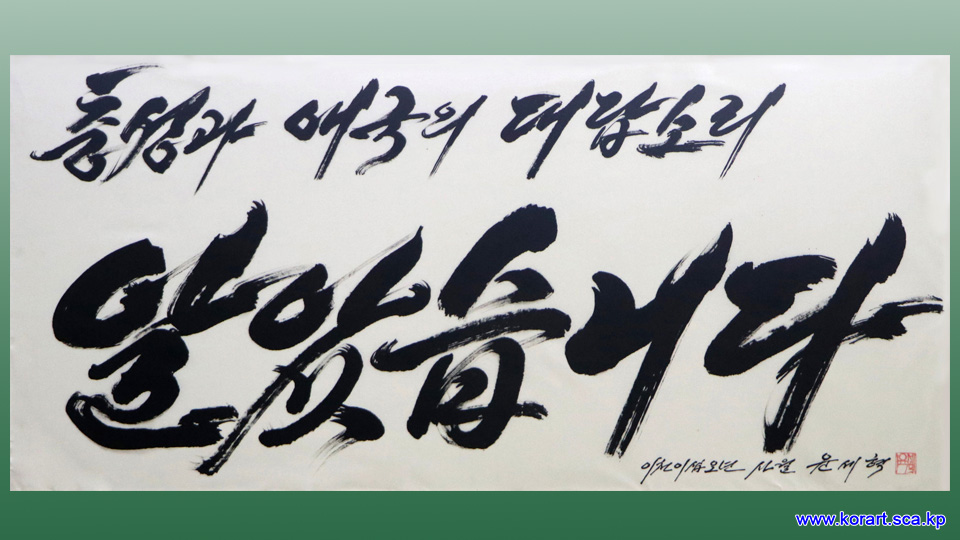 충성과 애국의 대답소리
알았습니다
이천이십오년 사월 윤세혁
www.korart.sca.kp